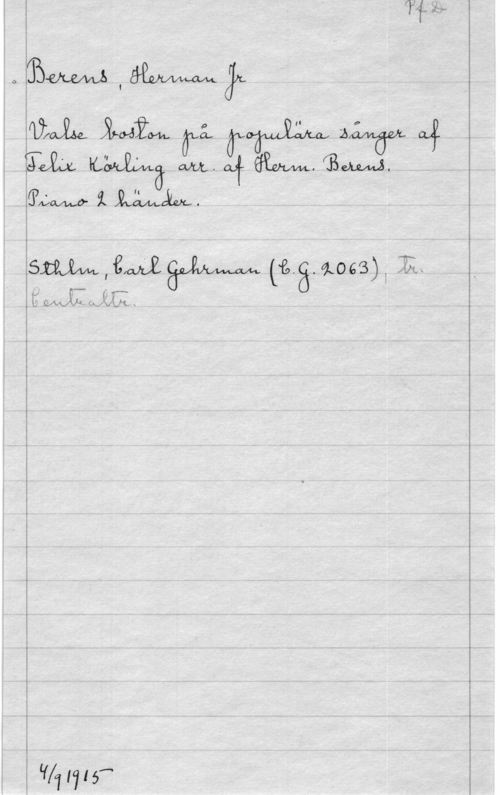 Pf 2
Berens, Herman Jr
Valse boston på populära sånger af
Felix Körling arr. af Herm. Berens.
Piano 2 händer.
Sthlm, Carl Gehrman (C.G. 2063), tr.
Centraltr.
4/9 1915